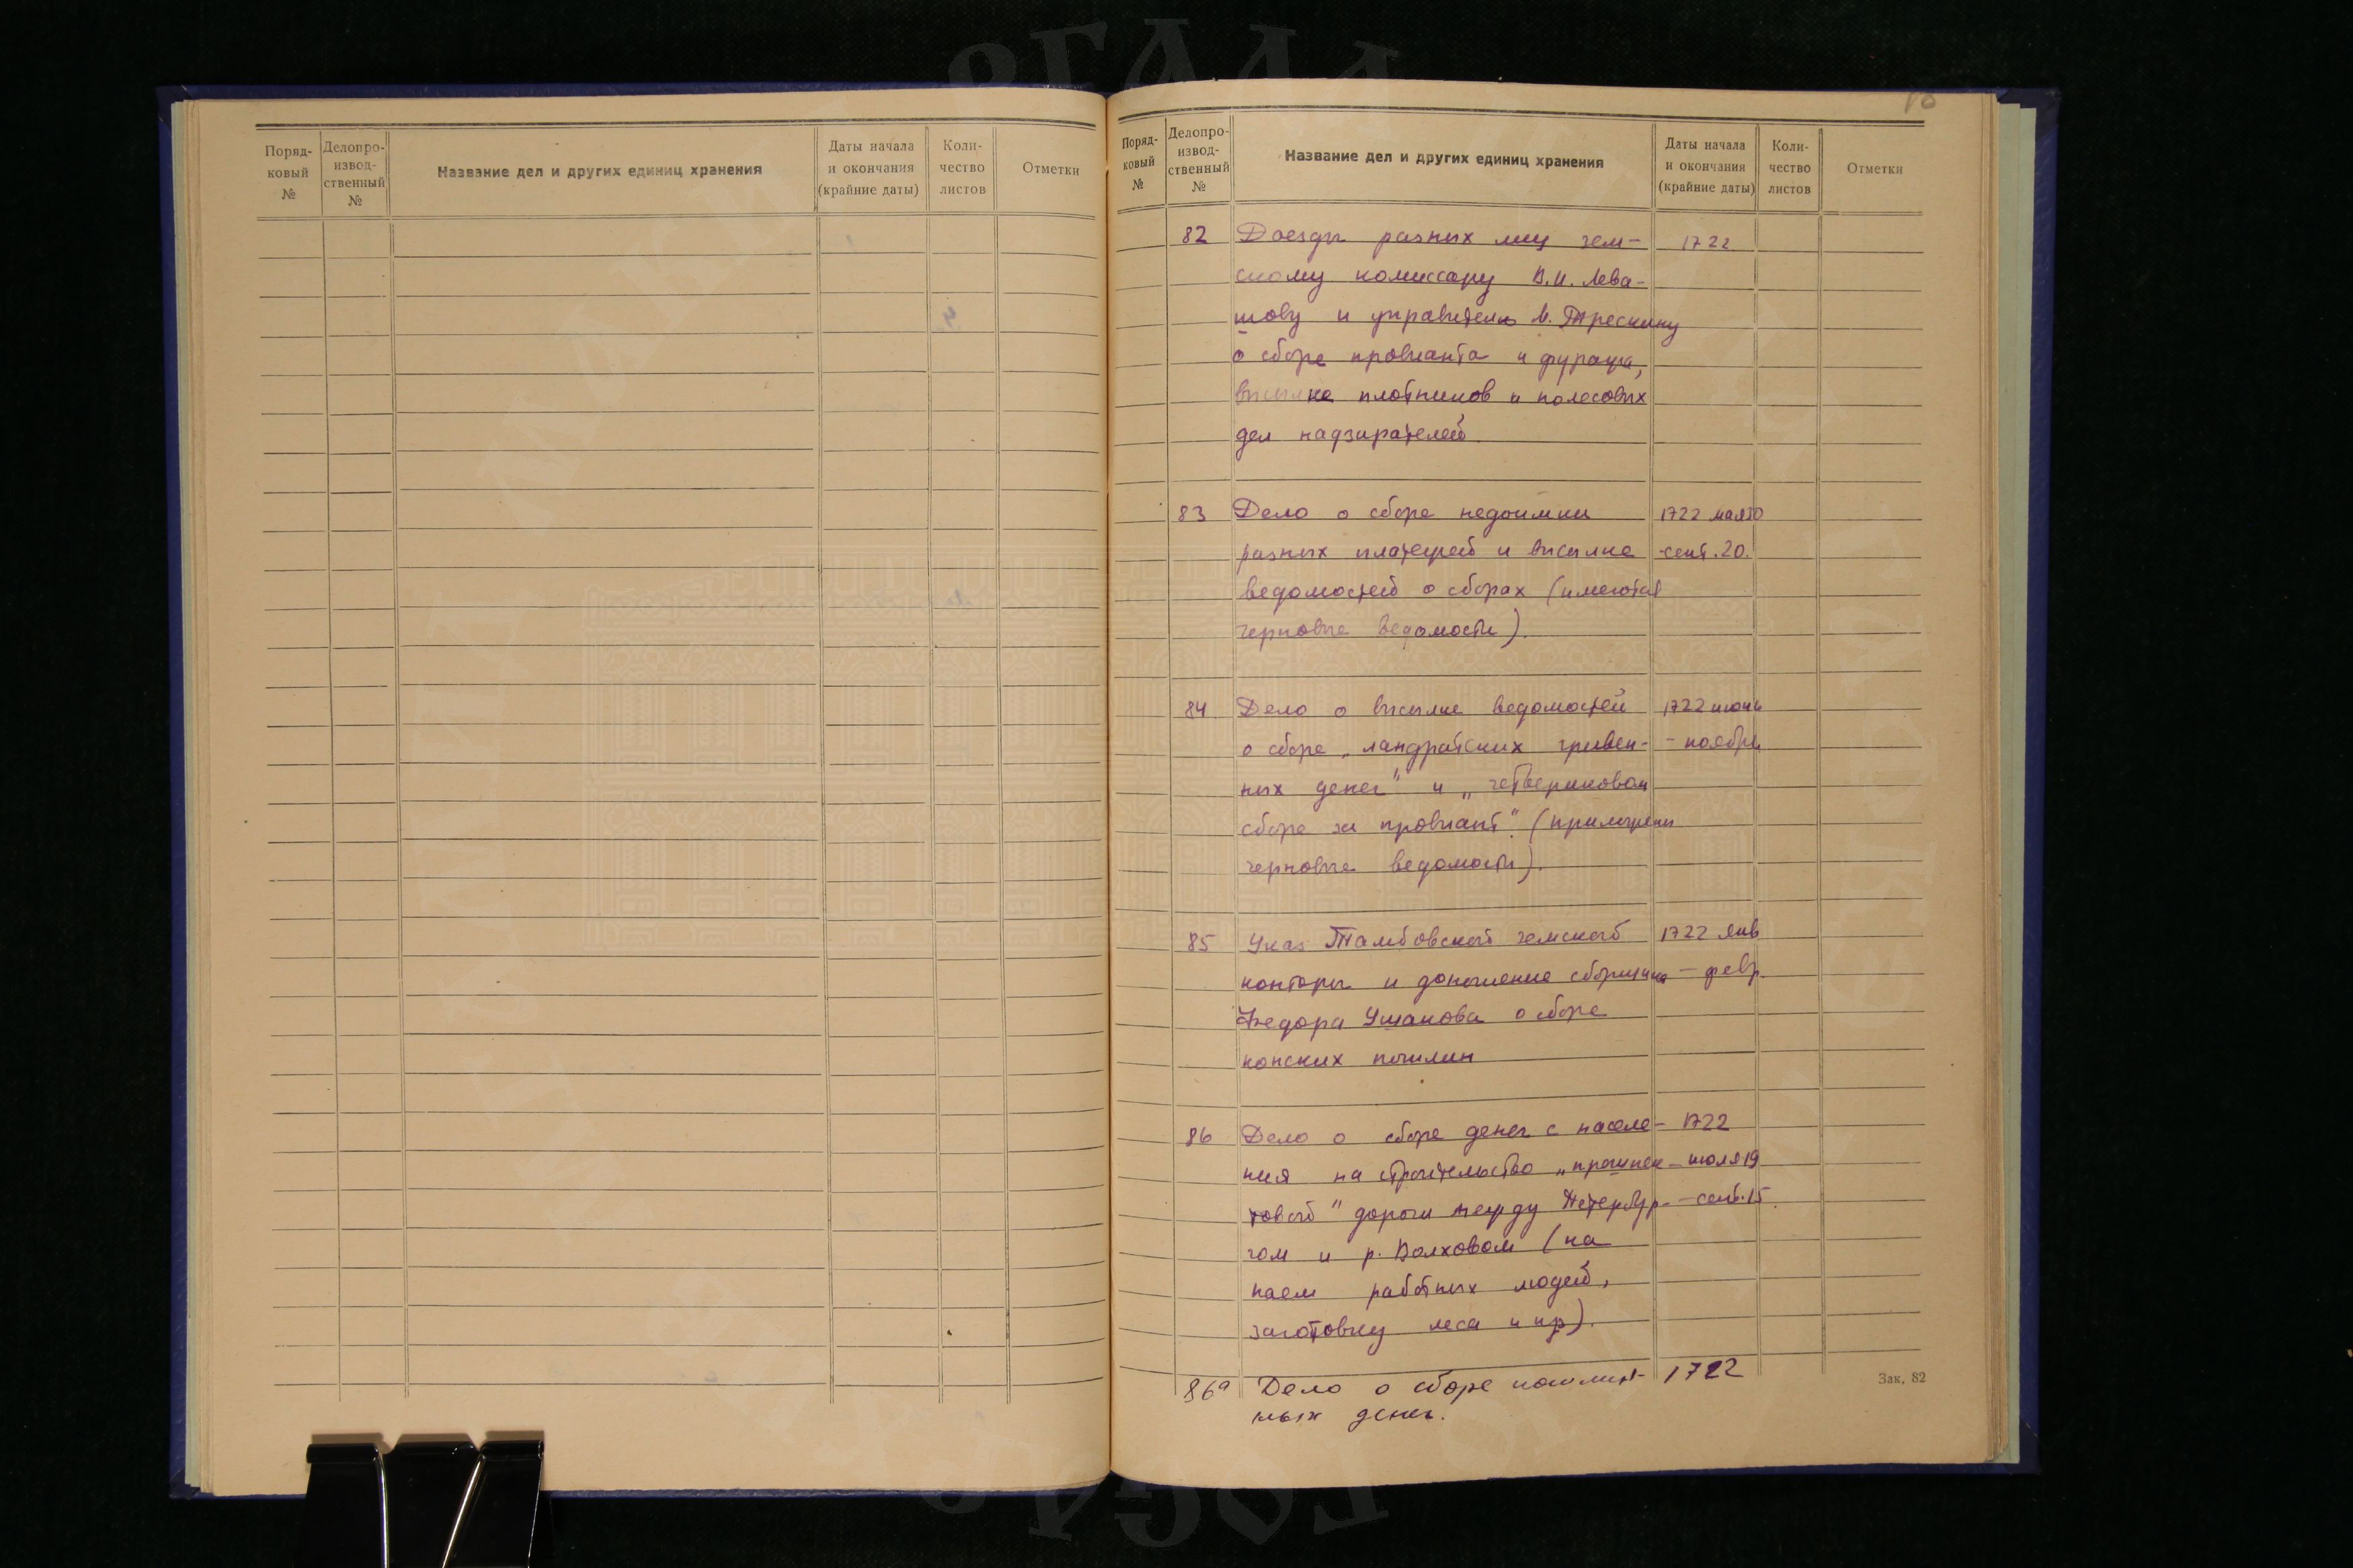 Поряд-
ковый
№
Делопро-
извод-
ственный
№
Название дел и других единиц хранения
Даты начала
и окончания
(крайние даты)
Коли-
чество
листов
Отметки
Поряд-
ковый
№
Делопро-
извод-
ственный
№
Название дел и других единиц хранения
Даты начала
и окончания
(крайние даты)
Коли-
чество
листов
Отметки
82 Доезды разных лиц зем- 1722
скому комиссару В.И. Лева-
шову и управителю М. Трескину
о сборе провианта и фуража,
высылке плотников и колесовых
дел надзирателей.
83 Дело о сборе недоимки 1722 мая 10
разных платежей и высылке -сент. 20.
ведомостей о сборах (имеются
черновые ведомости).
84 Дело о высылке ведомостей 1722 июнь
о сборе „ландратских гривен- - ноябрь
ных денег" и „четвериковом
сборе за провиант". (приложены
черновые ведомости).
85 Указ Тамбовской земской 1722 янв
конторы и доношение сборщика - февр.
Федора Ушакова о сборе
конских пошлин
86 Дело о сборе денег с населе- 1722
ния на строительство „прошпек- июля 19
товой" дороги между Петербур- - сент. 15.
гом и р. Волховом (на
наем работных людей,
заготовку леса и пр).
86а Дело о сборе пошлин- 1722
ных денег.
Зак. 82